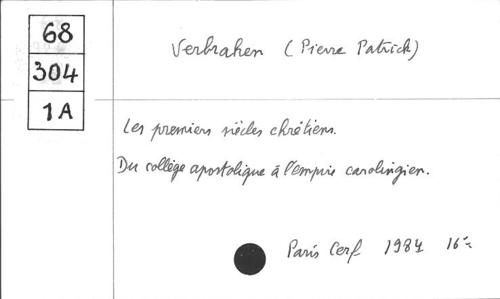 68
304
1A
Verbraken (Pierre Patrick)
Les premiers siècles chrétiens.
Du collège apostolique à l'empire carolingien.
Paris Cerf 1984 16